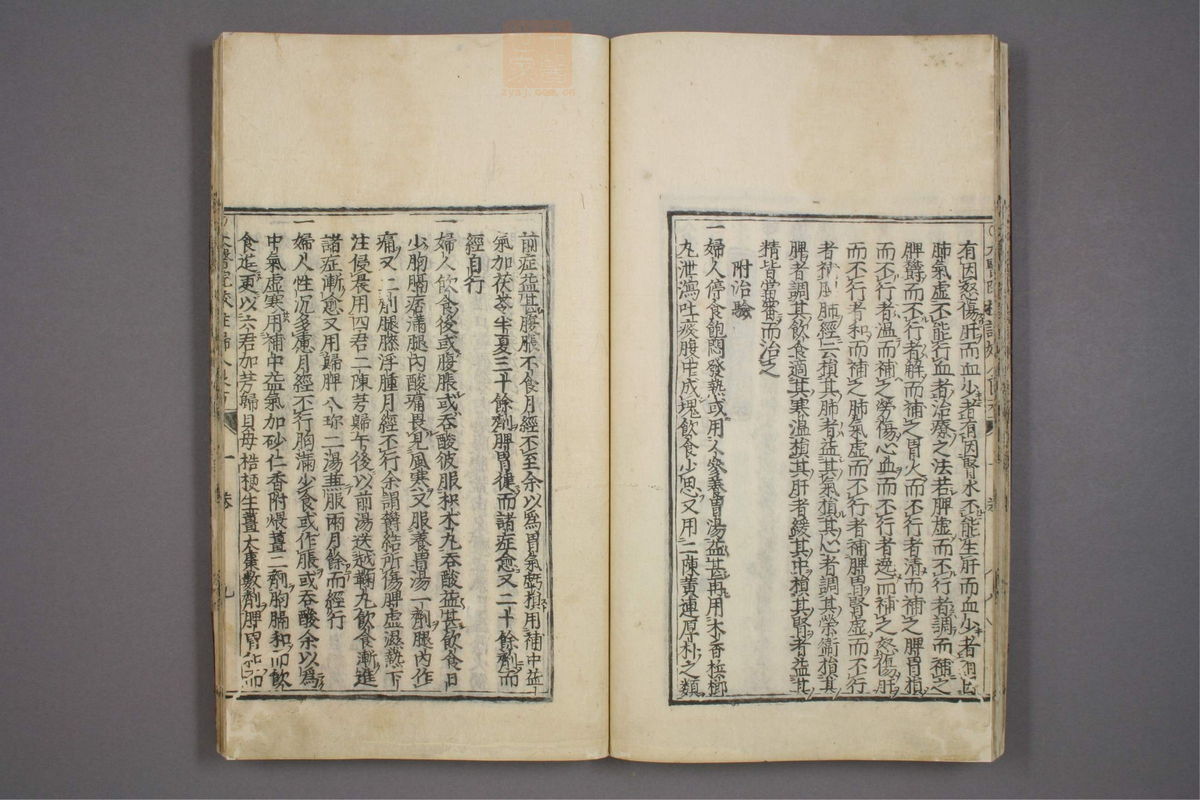 有因怒傷肝而血少者有因腎水不能生肝而血少者有因
肺氣虛不能行血者治療之法若脾虛而不行者調而補之
脾鬱而不行者解而補之胃火而不行者清而補之脾胃損
而不行者温而補之勞傷心血而不行者逸而補之怒傷肝
而不行者和而補之肺氣虛而不行者補脾胃腎虛而不行
者補脾肺經云損其肺者益其氣損其心者調其榮衛損其
脾者調其飲食適其寒温損其肝者緩其中損其腎者益其
精皆當審而治之
附治驗
一婦人停食飽悶發熱或用人參養胃湯益甚再用木香檳榔
丸泄瀉吐痰腹中成塊飲食少思又用二陳黄連厚朴之類
前症益甚腹脹不食月經不至余以爲胃氣虧損用補中益
氣加茯苓半夏三十餘劑脾胃健而諸症愈又二十餘劑而
經自行
一婦人飲食後或腹脹或吞酸彼服枳朮丸吞酸益甚飲食日
少胸膈痞滿腿内酸痛畏見風寒又服養胃湯一劑腿内作
痛又二劑腿膝浮腫月經不行余謂鬱結所傷脾虛濕熱下
注侵晨用四君二陳芎歸午後以前湯送越鞠丸飲食漸進
諸症漸愈又用歸脾八珎二湯兼服兩月餘而經行
一婦人性沉多慮月經不行胸滿少食或作脹或吞酸余以爲
中氣虛寒用補中益氣加砂仁香附煨薑二劑胸膈和而飲
食進更以六君加芎歸貝母桔梗生薑大棗數劑脾胃而
一卷
九
zysj.com.cn